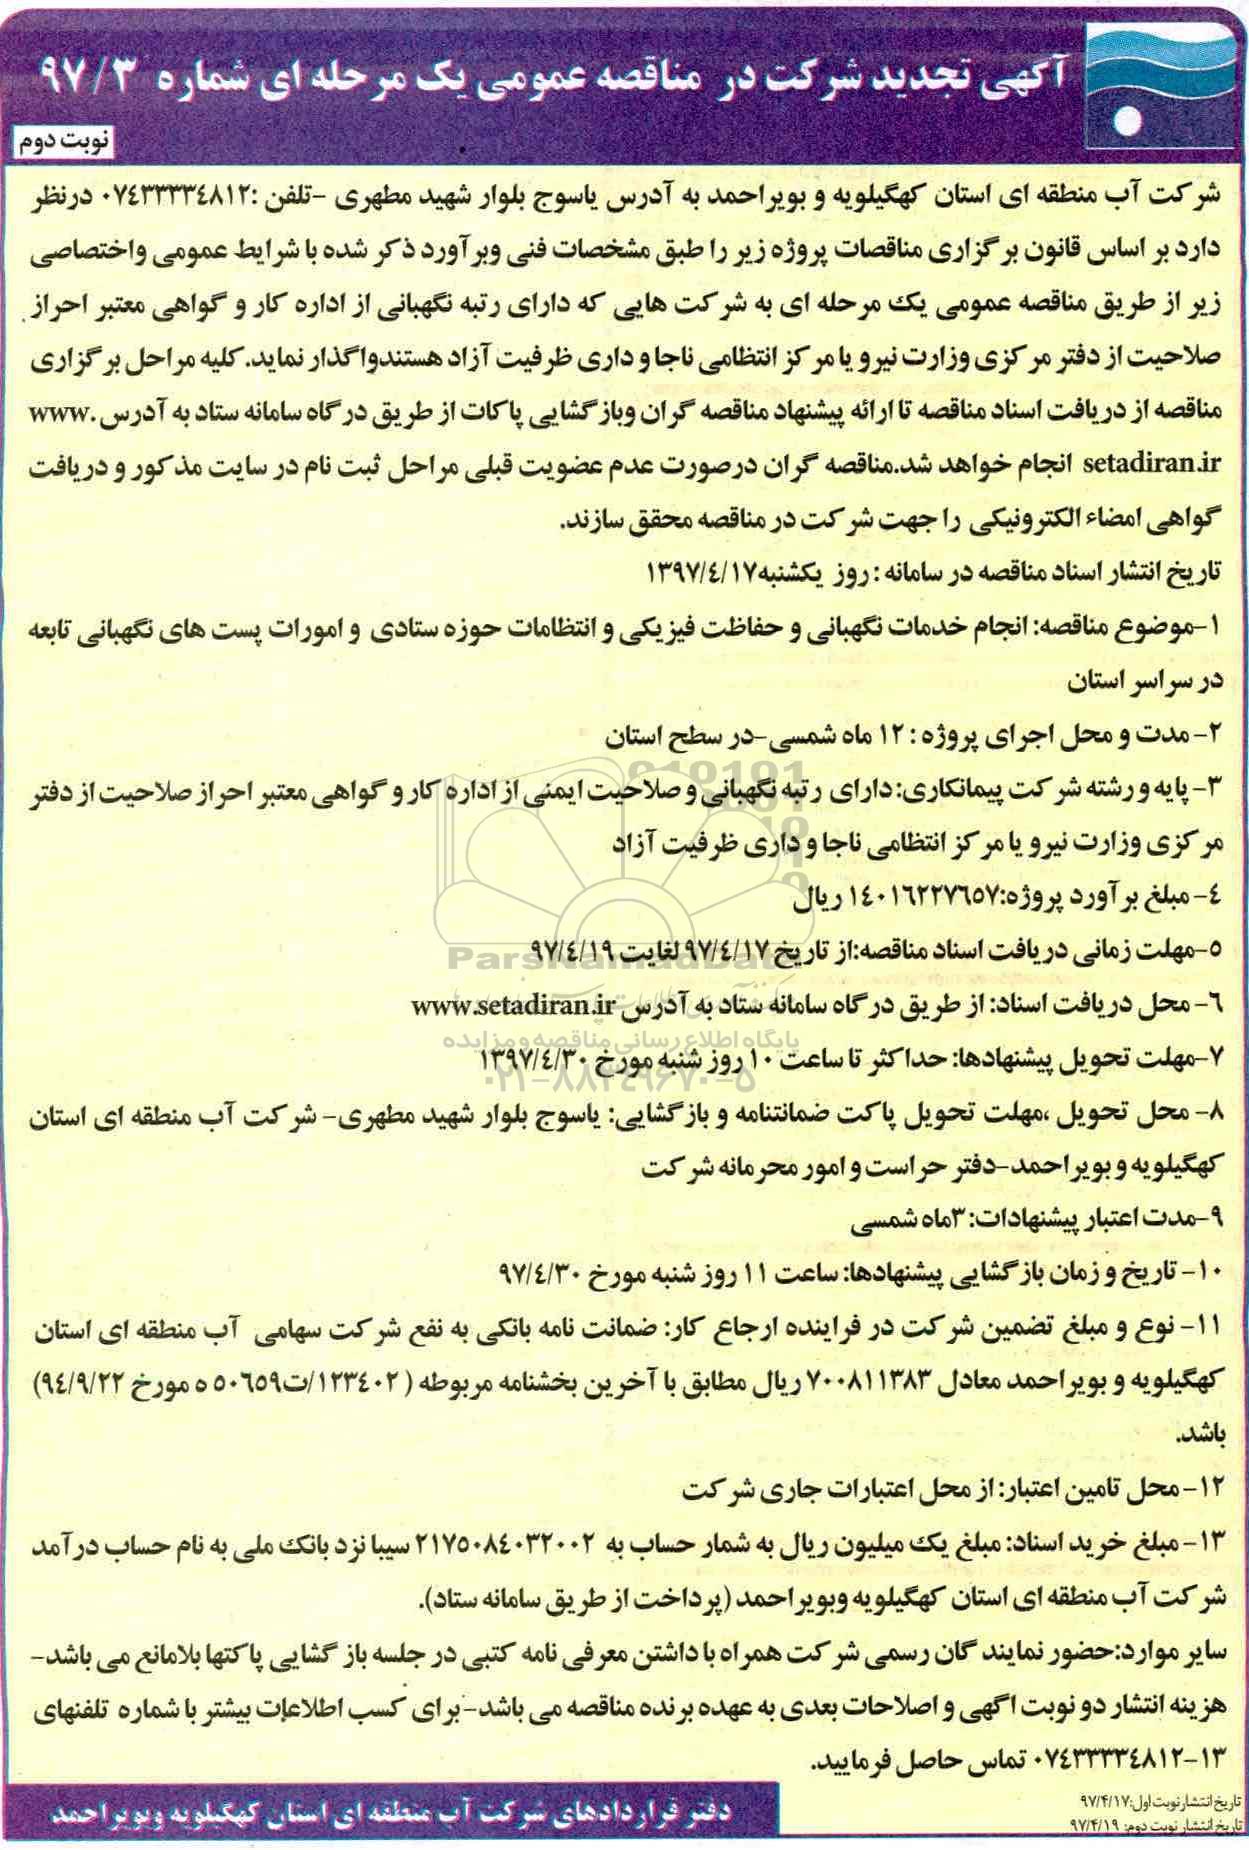 آگهی تجدید شرکت در مناقصه عمومی یک مرحله ای شماره ۹۷/۳
نوبت دوم
شرکت آب منطقه ای استان کهگیلویه و بویراحمد به آدرس یاسوج بلوار شهید مطهری -تلفن :۰۷٤۳۳۳۳٤۸۱۲ درنظر
دارد بر اساس قانون برگزاری مناقصات پروژه زیر را طبق مشخصات فنی وبرآورد ذکر شده با شرایط عمومی واختصاصی
زیر از طریق مناقصه عمومی یک مرحله ای به شرکت هایی که دارای رتبه نگهبانی از اداره کار و گواهی معتبر احراز
صلاحیت از دفتر مرکزی وزارت نیرو یا مرکز انتظامی ناجا و داری ظرفیت آزاد هستندواگذار نماید.کلیه مراحل برگزاری
مناقصه از دریافت اسناد مناقصه تا ارائه پیشنهاد مناقصه گران وبازگشایی پاکات از طریق درگاه سامانه ستاد به آدرس www.
setadiran.ir انجام خواهد شد.مناقصه گران درصورت عدم عضویت قبلی مراحل ثبت نام در سایت مذکور و دریافت
گواهی امضاء الکترونیکی را جهت شرکت در مناقصه محقق سازند.
تاریخ انتشار اسناد مناقصه در سامانه : روز یکشنبه۱۳۹۷/٤/۱۷
۱-موضوع مناقصه: انجام خدمات نگهبانی و حفاظت فیزیکی و انتظامات حوزه ستادی و امورات پست های نگهبانی تابعه
در سراسر استان
۲- مدت و محل اجرای پروژه : ۱۲ ماه شمسی-در سطح استان
۳- پایه و رشته شرکت پیمانکاری: دارای رتبه نگهبانی و صلاحیت ایمنی از اداره کار و گواهی معتبر احراز صلاحیت از دفتر
مرکزی وزارت نیرو یا مرکز انتظامی ناجا و داری ظرفیت آزاد
٤- مبلغ برآورد پروژه:۱٤۰۱٦۲۲۷٦۵۷ ریال
۵-مهلت زمانی دریافت اسناد مناقصه:از تاریخ ۹۷/٤/۱۷ لغایت ۹۷/٤/۱۹
ParsNamadData
٦- محل دریافت اسناد: از طریق درگاه سامانه ستاد به آدرس www.setadiran.ir
پایگاه اطلاع رسانی مناقصه و مزایده
۷-مهلت تحویل پیشنهادها: حداکثر تا ساعت ۱۰ روز شنبه مورخ ۱۳۹۷/٤/۳۰
۰۲۱-۸۸۳۴۹۶۷۰-۵
۸- محل تحویل ،مهلت تحویل پاکت ضمانتنامه و بازگشایی: یاسوج بلوار شهید مطهری- شرکت آب منطقه ای استان
کهگیلویه و بویراحمد-دفتر حراست و امور محرمانه شرکت
۹-مدت اعتبار پیشنهادات: ۳ماه شمسی
۱۰- تاریخ و زمان بازگشایی پیشنهادها: ساعت ۱۱ روز شنبه مورخ ۹۷/٤/۳۰
۱۱- نوع و مبلغ تضمین شرکت در فراینده ارجاع کار: ضمانت نامه بانکی به نفع شرکت سهامی آب منطقه ای استان
کهگیلویه و بویراحمد معادل ۷۰۰۸۱۱۳۸۳ ریال مطابق با آخرین بخشنامه مربوطه (۱۲۳٤۰۲/ت۵۰٦۵۹ ه مورخ ۹٤/۹/۲۲)
باشد.
۱۲- محل تامین اعتبار: از محل اعتبارات جاری شرکت
۱۳- مبلغ خرید اسناد: مبلغ یک میلیون ریال به شمار حساب به ۲۱۷۵۰۸٤۰۳۲۰۰۲ سیبا نزد بانک ملی به نام حساب درآمد
شرکت آب منطقه ای استان کهگیلویه وبویراحمد (پرداخت از طریق سامانه ستاد).
سایر موارد:حضور نمایندگان رسمی شرکت همراه با داشتن معرفی نامه کتبی در جلسه بازگشایی پاکتها بلامانع می باشد-
هزینه انتشار دو نوبت اگهی و اصلاحات بعدی به عهده برنده مناقصه می باشد- برای کسب اطلاعات بیشتر با شماره تلفنهای
۰۷٤۳۳۳۳٤۸۱۲-۱۳ تماس حاصل فرمایید.
تاریخ انتشار نوبت اول:۹۷/۴/۱۷
تاریخ انتشار نوبت دوم: ۹۷/۴/۱۹
دفتر قراردادهای شرکت آب منطقه ای استان کهگیلویه وبویراحمد